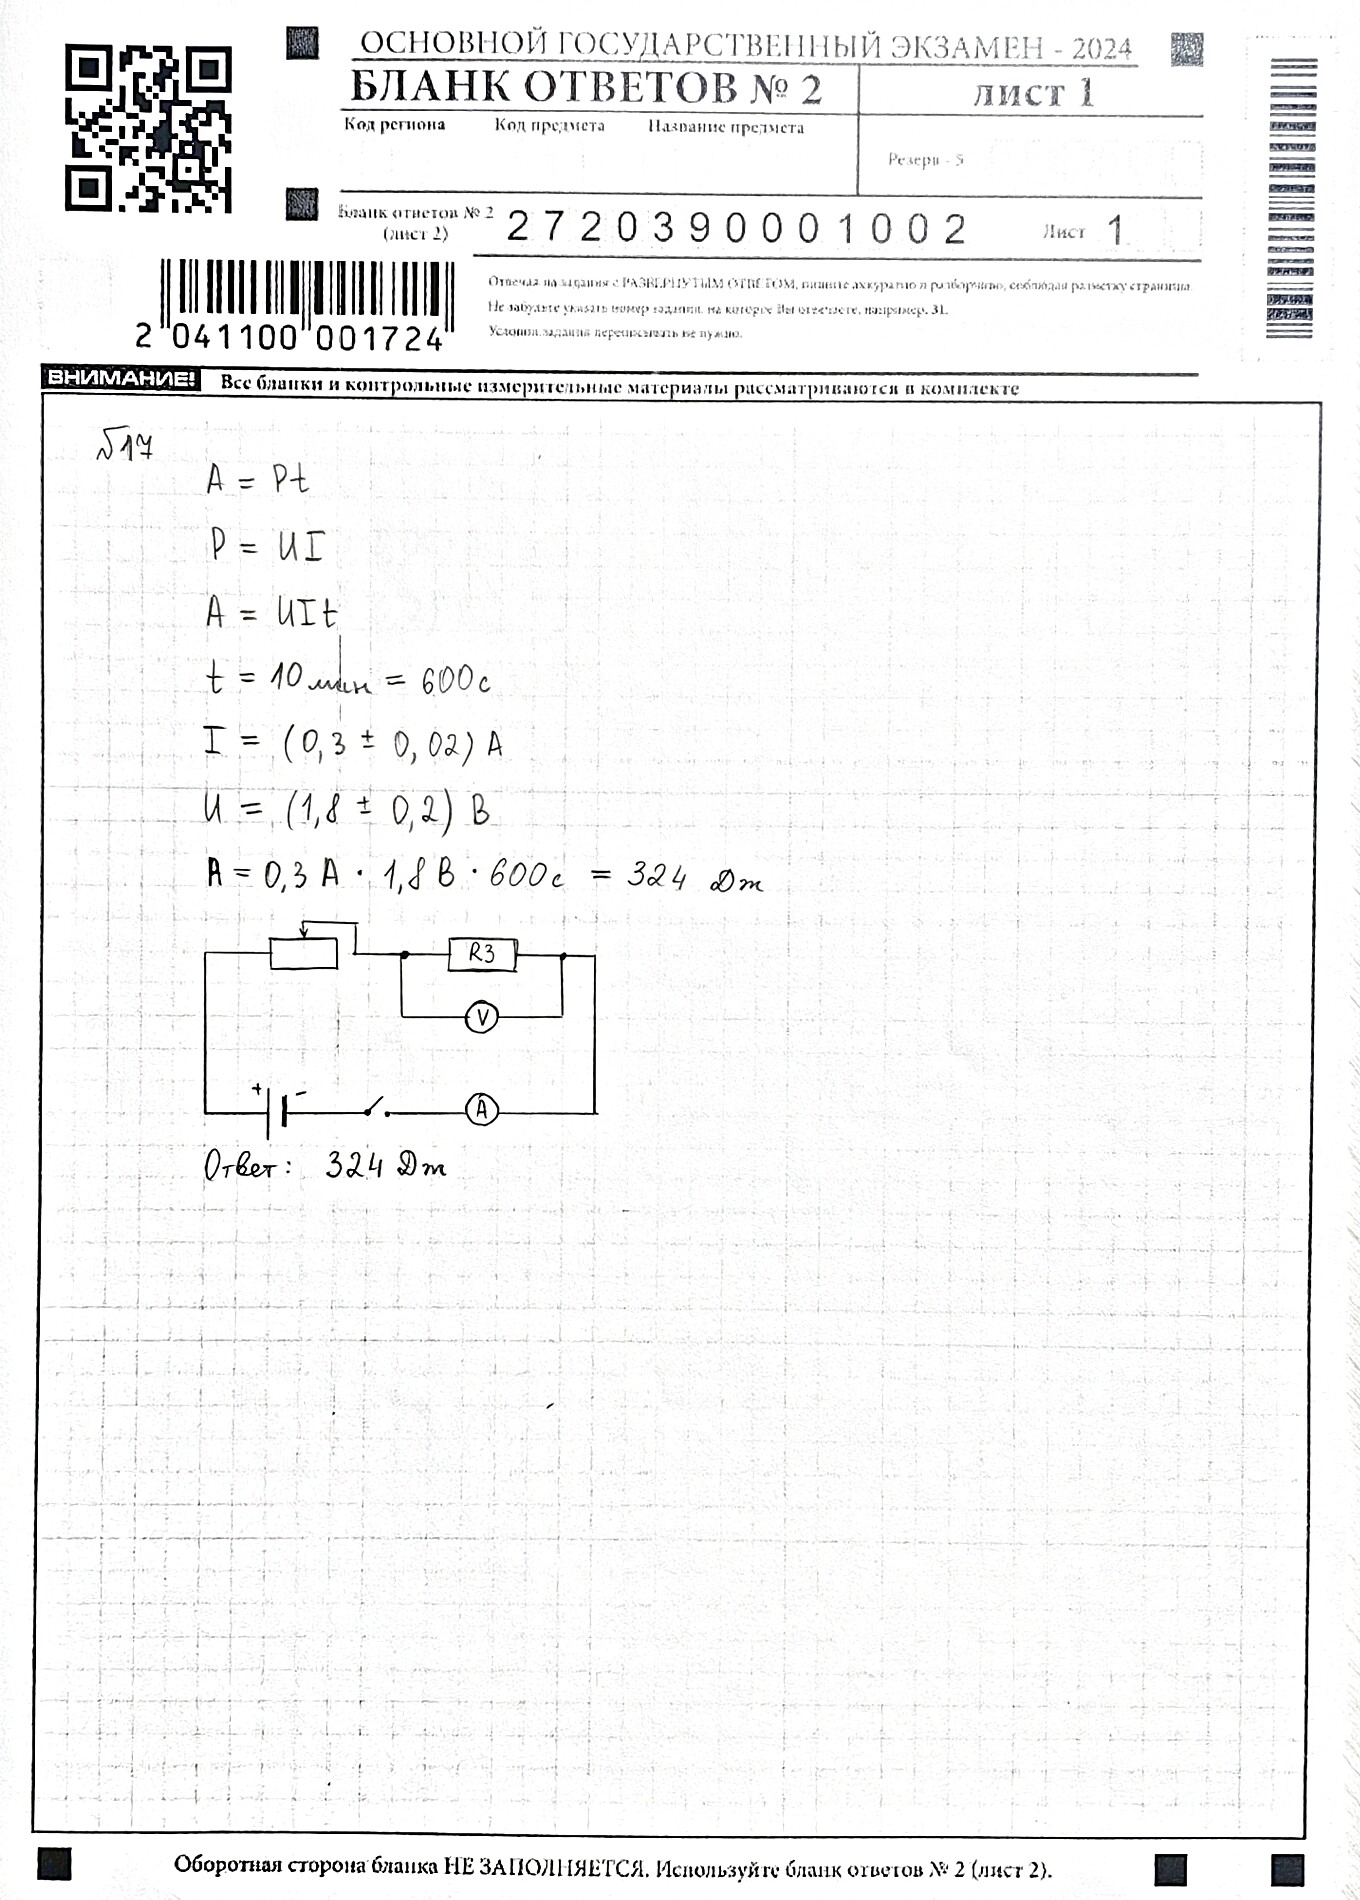 ОСНОВНОЙ ГОСУДАРСТВЕННЫЙ ЭКЗАМЕН - 2024
БЛАНК ОТВЕТОВ № 2
лист 1
Код региона Код предмета Название предмета
Резерв - 5
Бланк ответов № 2
(лист 2)
2720390001002
Лист 1
Отвечая на задания с РАЗВЕРНУТЫМ ОТВЕТОМ, пишите аккуратно и разборчиво, соблюдая разметку страницы.
Не забудьте указать номер задания, на которое Вы отвечаете, например, 31.
Условия задания переписывать не нужно.
2 041100 001724
ВНИМАНИЕ! Все бланки и контрольные измерительные материалы рассматриваются в комплекте
№17
A = Pt
P = UI
A = UIt
t = 10 мин = 600с
I = (0,3 ± 0,02) А
U = (1,8 ± 0,2) В
A = 0,3 А · 1,8 В · 600с = 324 Дж
R3
V
+ -
A
Ответ: 324 Дж
Оборотная сторона бланка НЕ ЗАПОЛНЯЕТСЯ. Используйте бланк ответов № 2 (лист 2).